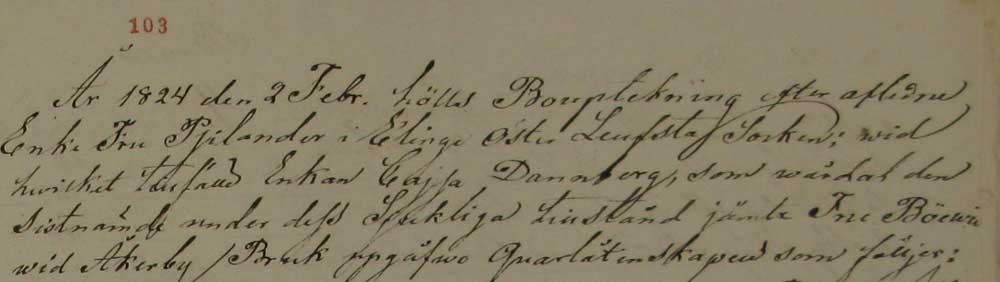 103
År 1824 den 2 Febr. hölls Bouptekning efter aflidne
Enke Fru Pjilander i Elinge Öster Leufsta Socken; wid
hwilket tillfälle Enkan Cajsa Dannberg, som wårdat den
sistnämde under dess Sjukliga tillstånd jämte Fru
wid Åkerby Bruk uppgåfwo Quarlåtenskapen som följer: